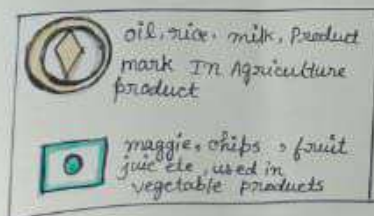 oil, rice, milk, Product
mark In Agriculture
product
maggie, chips, fruit
juic ete, used in
vegetable products